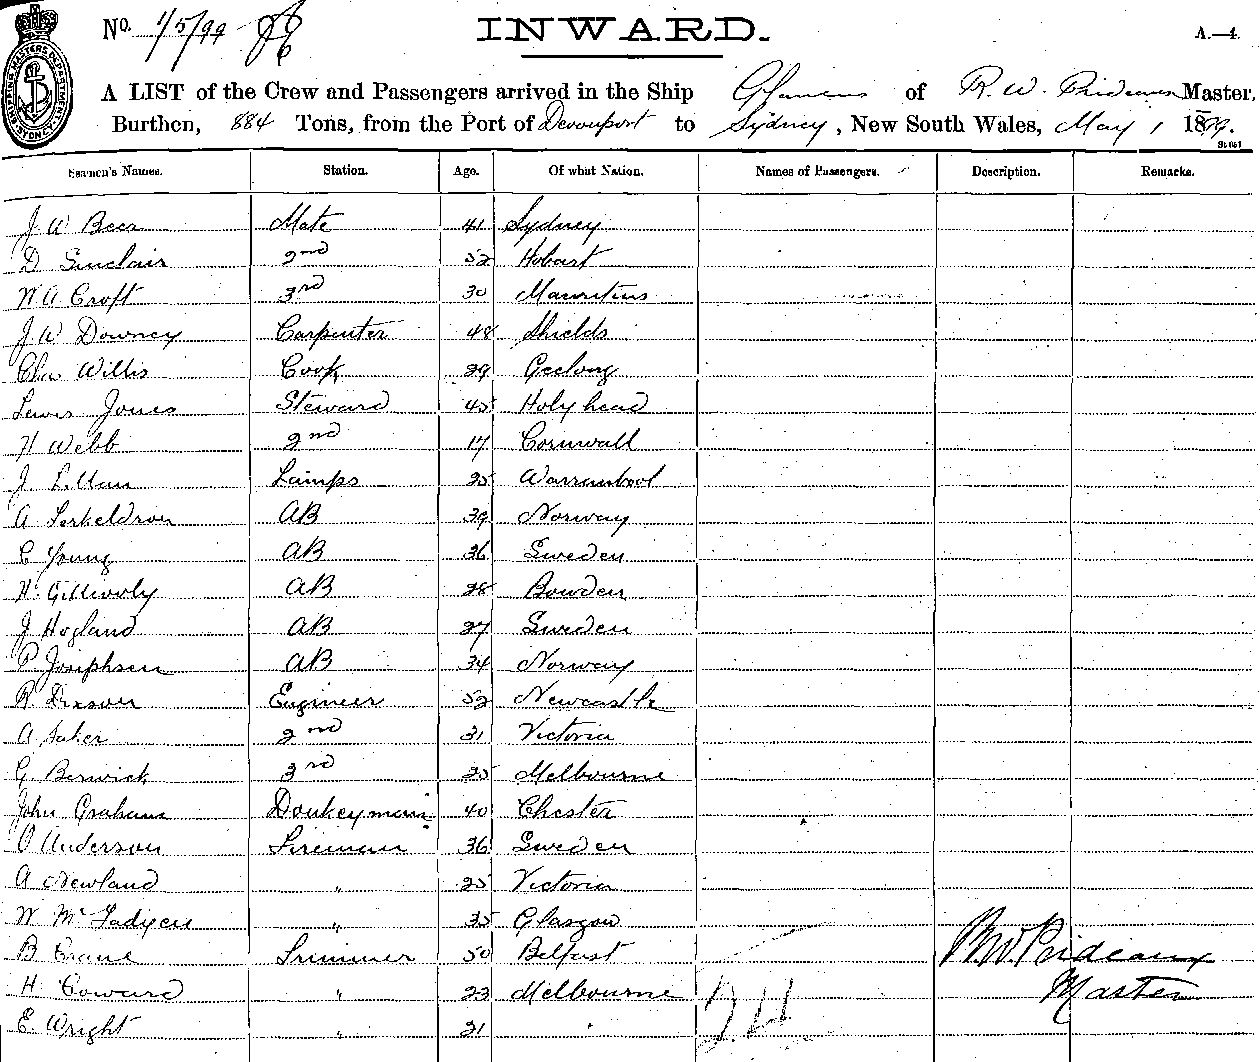 No. 1/5/99 INWARD. A.—4.
A LIST of the Crew and Passengers arrived in the Ship of R. W. Prideaux Master,
Burthen, 884 Tons, from the Port of Devonport to Sydney, New South Wales, May 1 1899.
Seamen's Names. Station. Age. Of what Nation. Names of Passengers. Description. Remarks.
J W Beer Mate 41 Sydney
D Sinclair 2nd 52 Hobart
W A Croft 3rd 30 Mauritius
J. W Downey Carpenter 48 Shields
Chas Willis Cook 29 Geelong
Lewis Jones Steward 45 Holyhead
H Webb 2nd 17 Cornwall
J Lamps 25 Warrnambool
A AB 39 Norway
C Young AB 36 Sweden
H AB 28 Bowden
J Hogland AB 27 Sweden
P Josephsen AB 34 Norway
R Dixson Engineer 52 Newcastle
A 2nd 31 Victoria
G Berwick 3rd 25 Melbourne
John Graham Donkeyman 40 Chester
O Anderson Fireman 36 Sweden
A Newland " 25 Victoria
W McFadyen " 35 Glasgow
B Crane Trimmer 50 Belfast R W Prideaux
H Coward " 23 Melbourne Master
E. Wright " 21 "